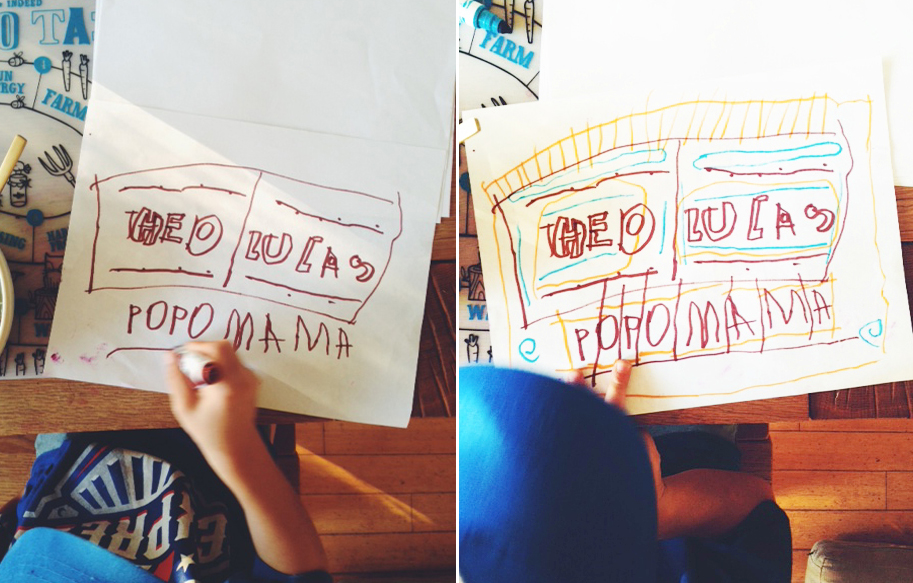 INDEED
FARM
THEO LUCAS
POPO MAMA
FARM
THEO LUCAS
POPO MAMA